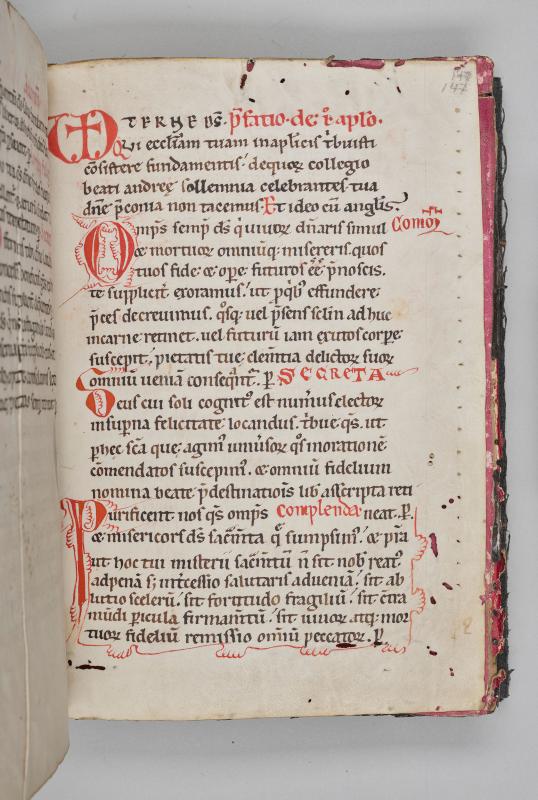 147
147
ETERNE DS. p̄fatio de . apl̄o.
Qui eccl̄iam tuam in apl̄icis tͥbuisti
cōsistere fundamentis . de quoꝝ collegio
beati andreę sollemnia celebrantes tua
dn̄e p̄conia non tacemus. Et ideo cū angl̄is.
Omp̄s semp̄ ds̄ qͥ uiuoꝝ dn̄aris simul Com̄o
et mortuoꝝ omniūq; misereris quos
tuos fide et oꝑe futuros ee᷒ p̄noscis.
te supplicit̄ exoramus. ut ꝓ qͥb᷒ effundere
p̄ces decreuimus. qͦsq; uel p̄sens sc̄lm adhuc
in carne retinet. uel futurū iam exutos corꝑe
suscepit. pietatis tuę clem̄tia delictoꝝ suoꝝ
omniū ueniā consequn̄t. ꝑ SECRETA
Deus cui soli cognitꝰ est numꝰus electoꝝ
in suꝑna felicitate locandus. tͥbue qs̄. ut
ꝑ hec sc̄a que agimꝰ uniūsoꝝ qͦs in oratione
cōmendatos suscepimꝰ. et omniū fidelium
nomina beate p̄destinationis lib᷒ asscripta reti
Purificent nos qs̄ omp̄s Complenda neat. ꝑ.
et misericors ds̄ sacm̄ta q̄ sumpsimꝰ. et p̄sta
ut hoc tui misterii sacm̄tū n̄ sit nob᷒ reatꝰ
ad penā s; int̄cessio salutaris ad ueniā. sit ab
lutio scelerū. sit fortitudo fragiliū. sit cͦtra
mūdi ꝑicula firmam̄tū. sit uiuoꝝ atq; mor
tuoꝝ fideliū remissio omnīū peccatoꝝ. ꝑ